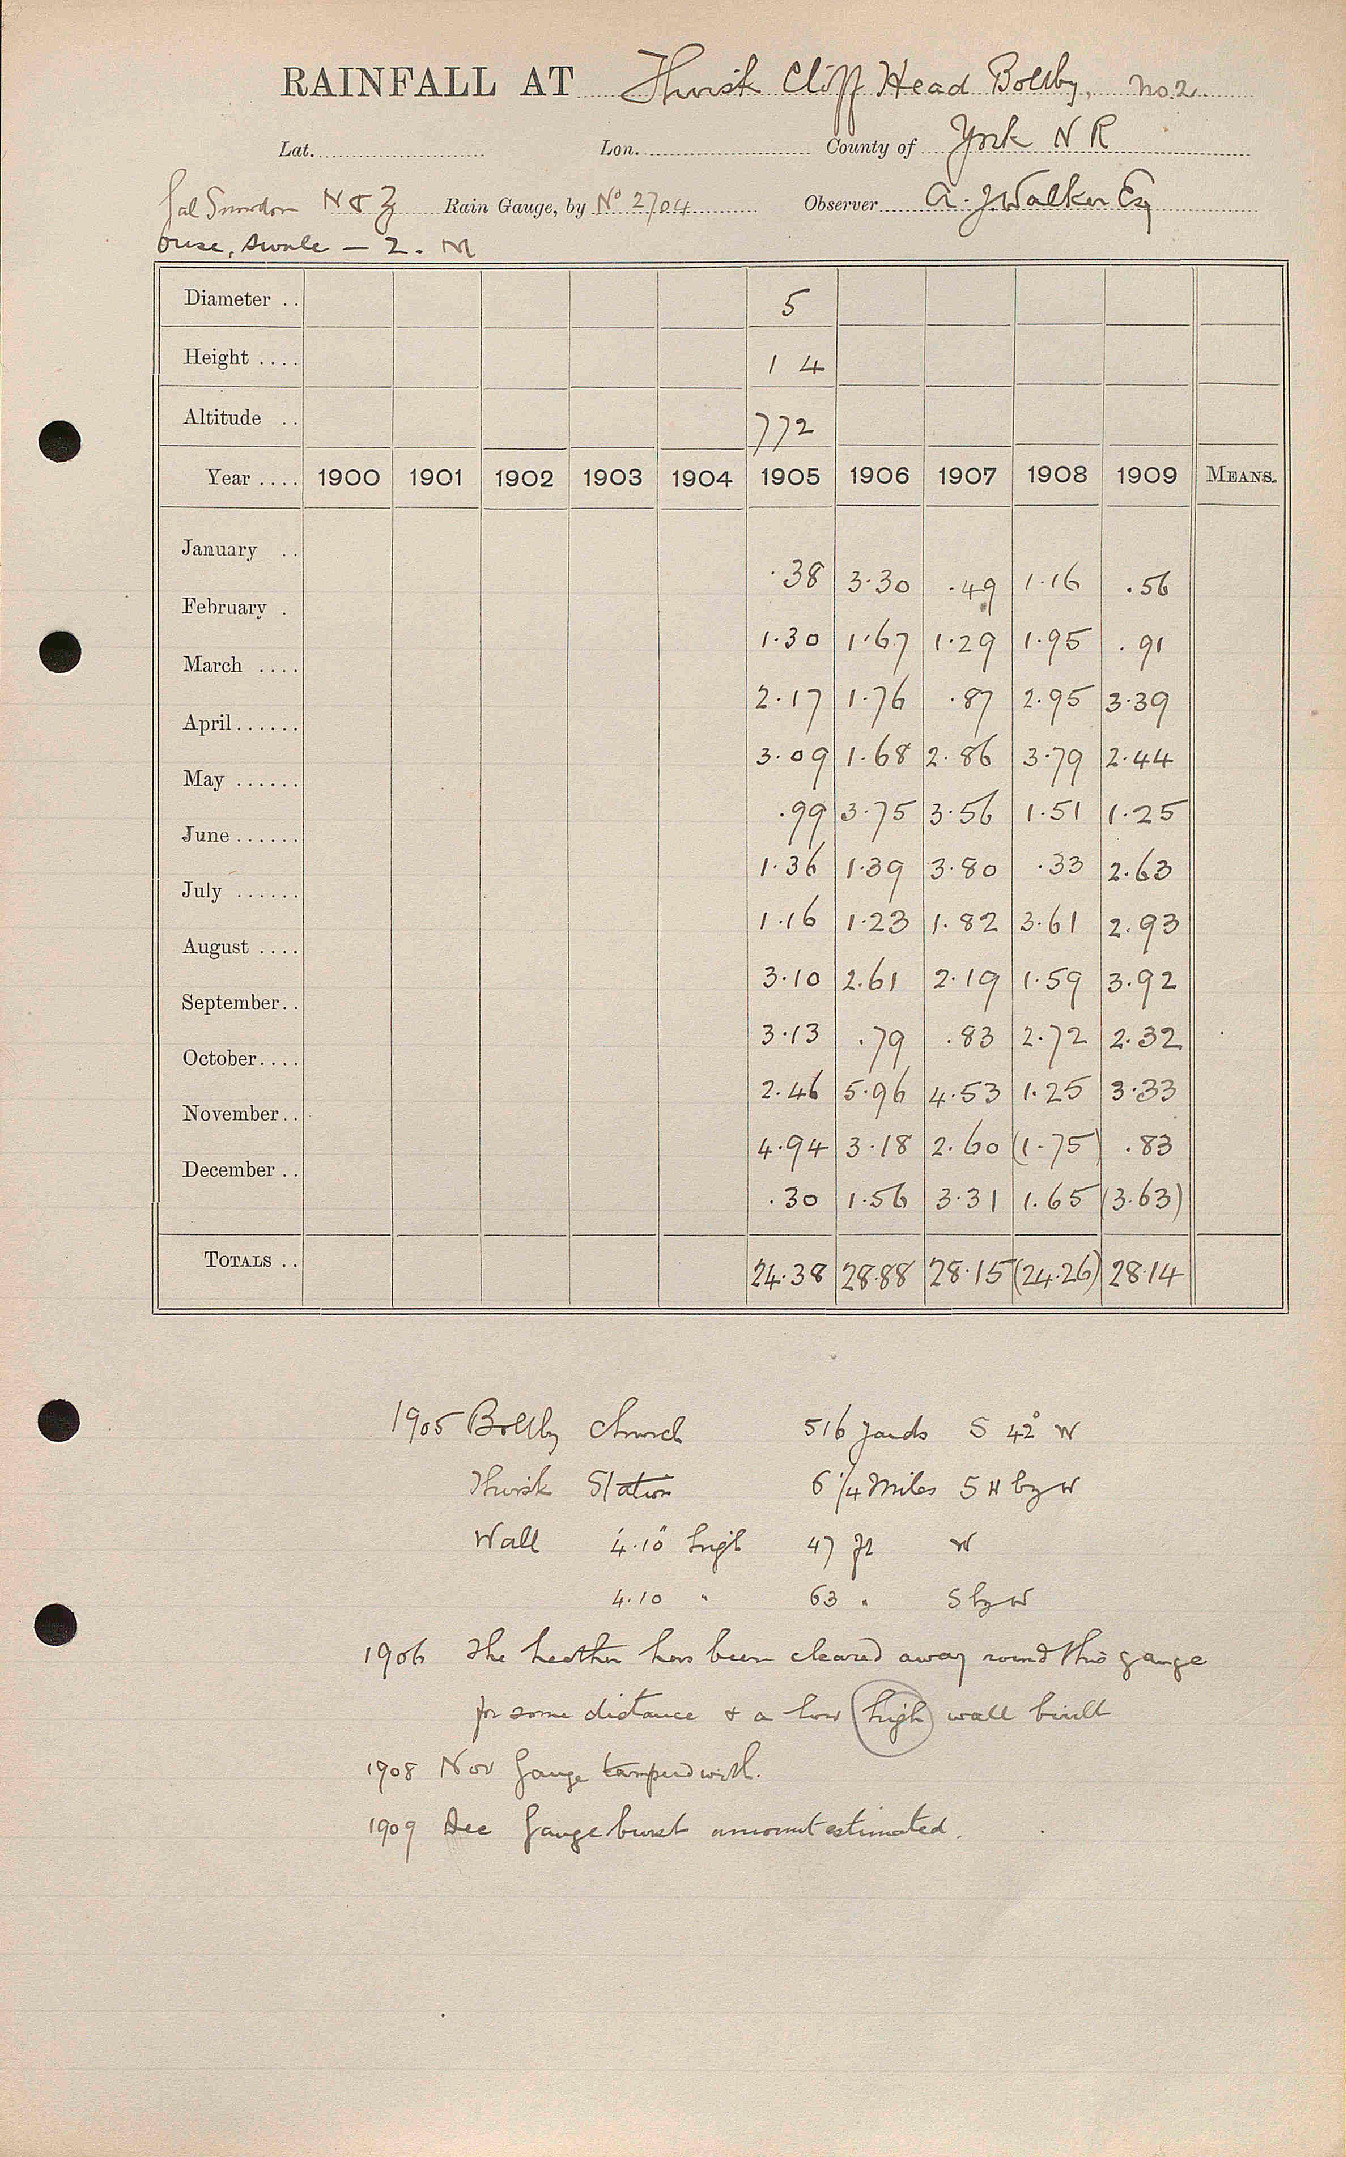 RAINFALL AT Thirsk Cliff Head Boltby, No 2
Lat. Lon. County of York N R
Gal Snowdon N & Z Rain Gauge, by No 2704 Observer A. J. Walker Esq
Ouse, Swale — 2. M
Diameter .. 5
Height .... 1 4
Altitude .. 772
Year .... 1900 1901 1902 1903 1904 1905 1906 1907 1908 1909 MEANS.
January .. .38 3.30 .49 1.16 .56
February . 1.30 1.67 1.29 1.95 .91
March .... 2.17 1.76 .87 2.95 3.39
April...... 3.09 1.68 2.86 3.79 2.44
May ...... .99 3.75 3.56 1.51 1.25
June ...... 1.36 1.39 3.80 .33 2.63
July ...... 1.16 1.23 1.82 3.61 2.93
August .... 3.10 2.61 2.19 1.59 3.92
September.. 3.13 .79 .83 2.72 2.32
October.... 2.46 5.96 4.53 1.25 3.33
November.. 4.94 3.18 2.60 (1.75) .83
December .. .30 1.56 3.31 1.65 (3.63)
TOTALS .. 24.38 28.88 28.15 (24.26) 28.14
1905 Boltby Church 516 yards S 42° W
Thirsk Station 6 1/4 Miles S W by W
Wall 4'.10" high 47 ft W
4.10 " 63 " S by W
1906 The heather has been cleared away round this gauge
for some distance & a low high wall built
1908 Nov Gauge tampered with.
1909 Dec Gauge burst amount estimated.